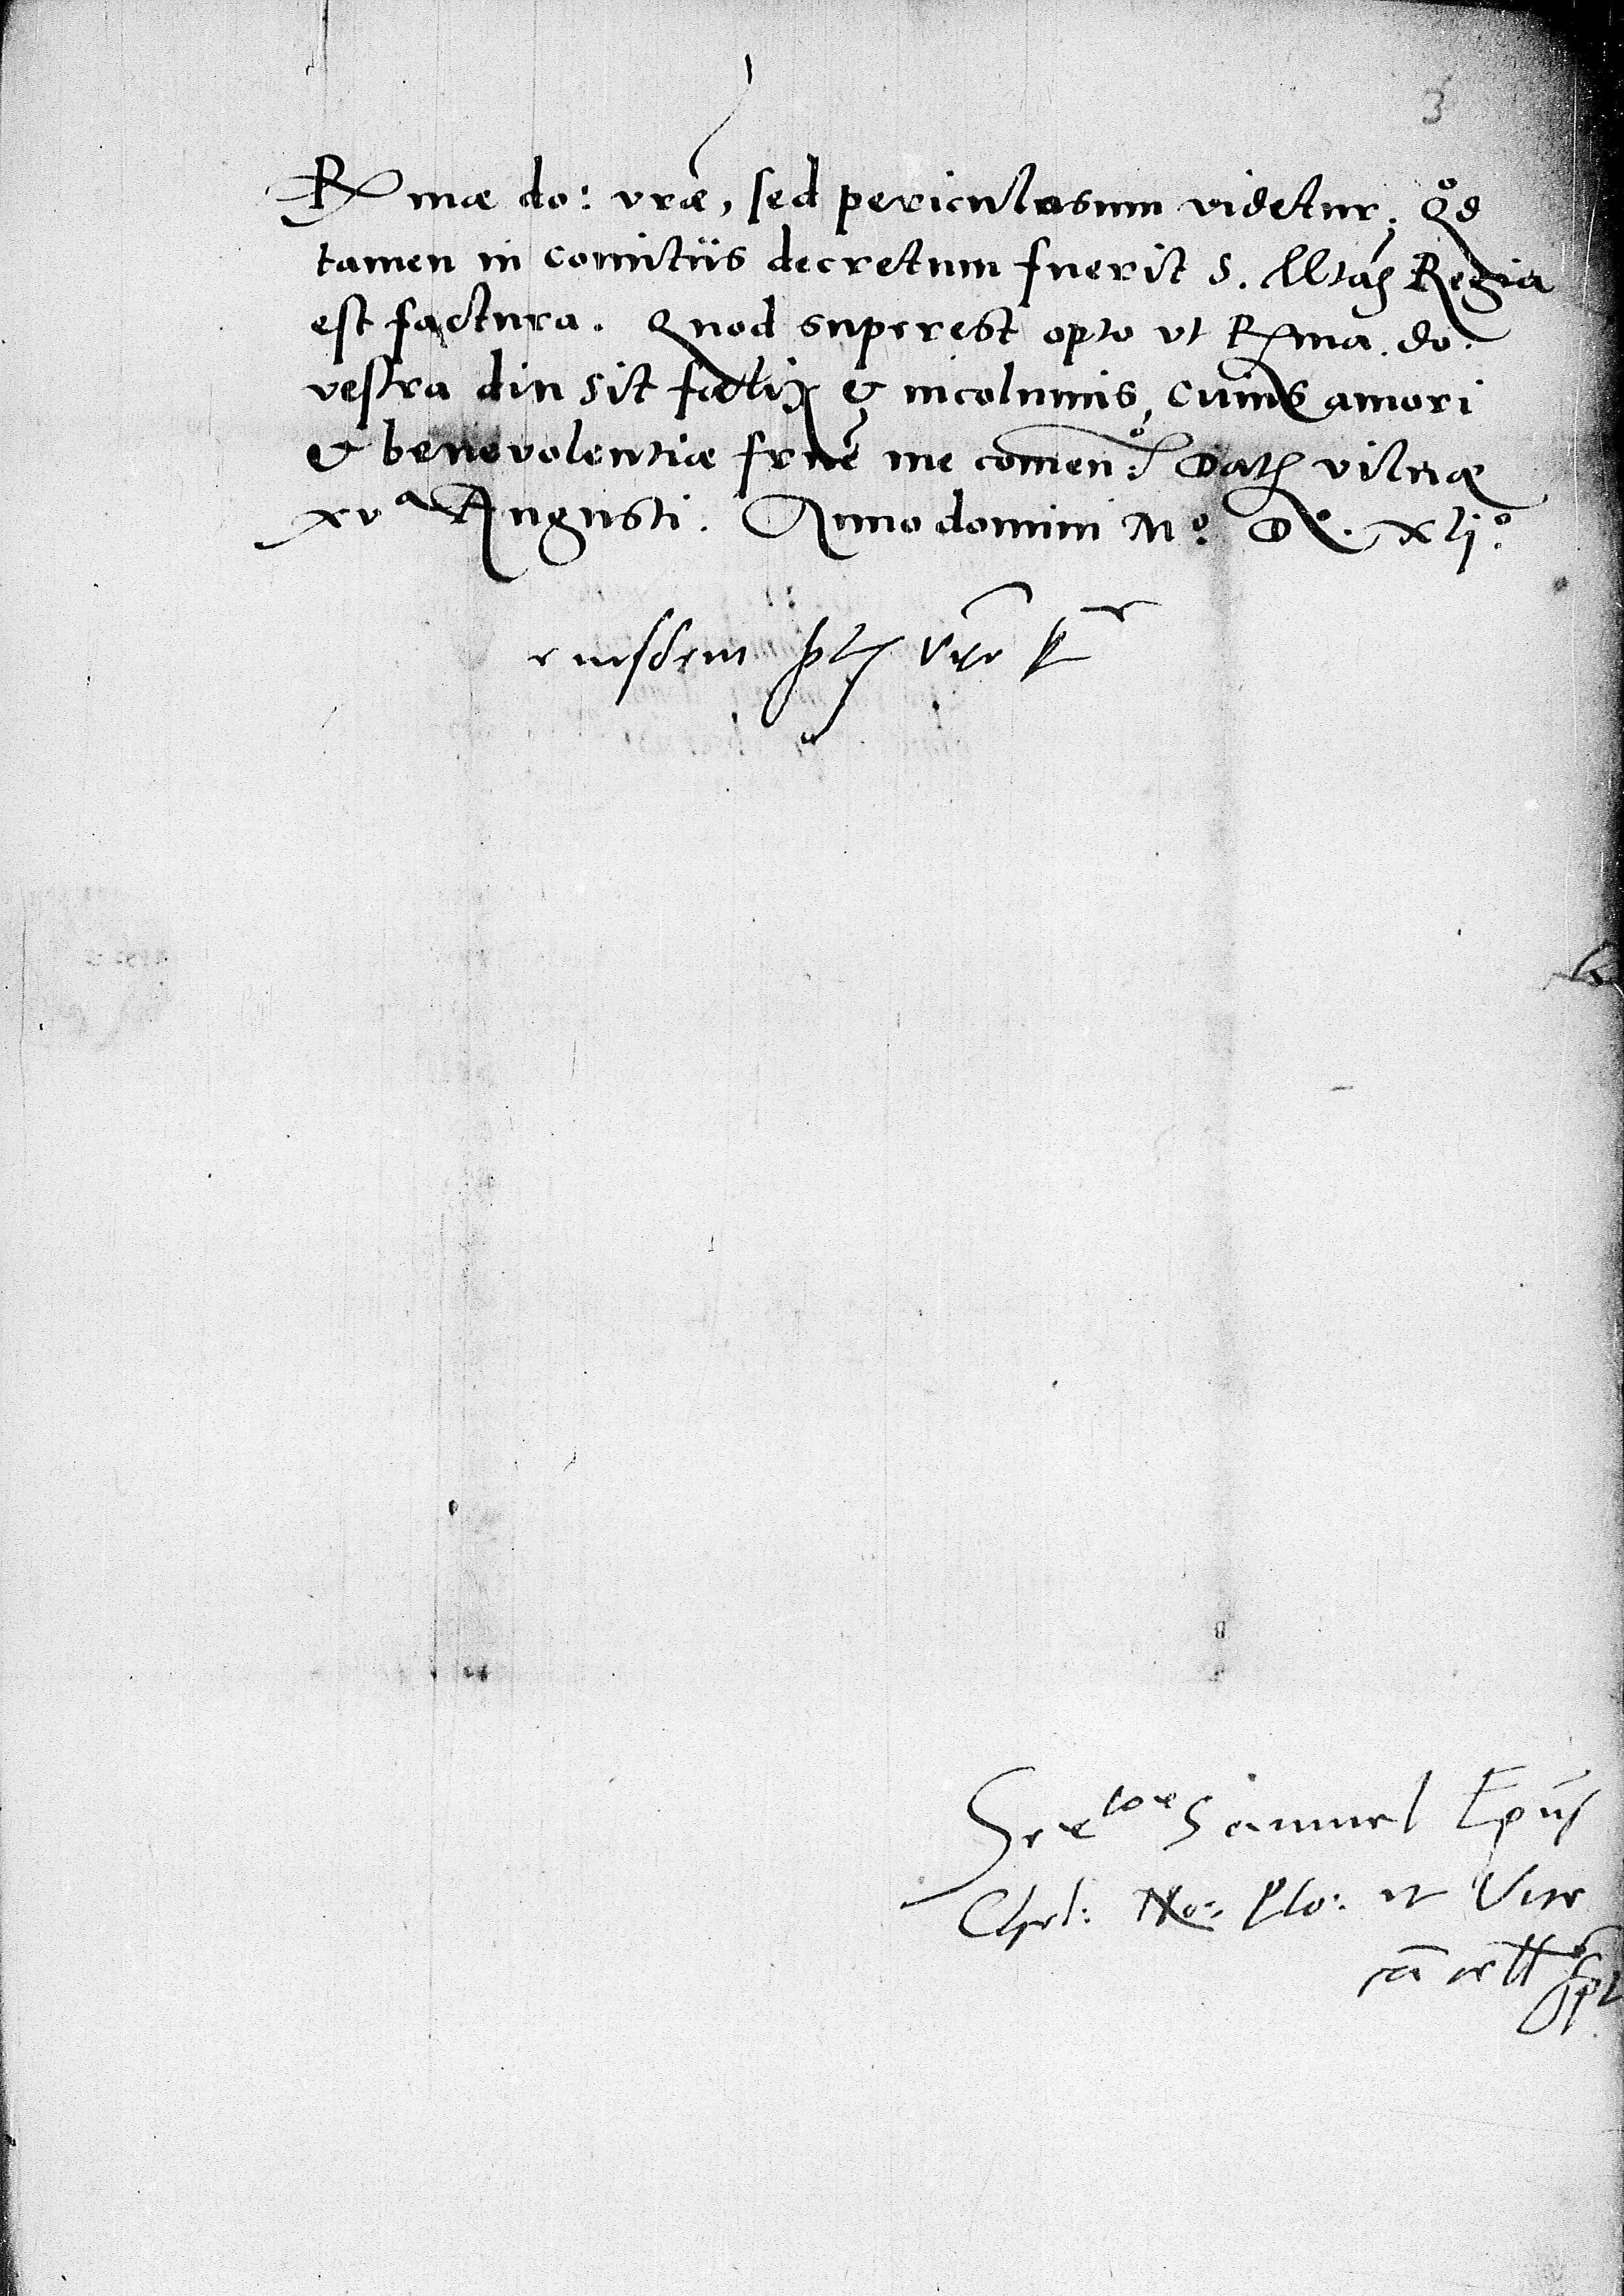 3
Rmæ do: vræ, sed periculosum videtur. Qd
tamen in comitiis decretum fuerit S. Mtas Regia
est factura. Quod superest opto vt Rma. do.
vestra diu sit fœlix & incolumis, cuius amori
& benevolentiæ frne me comen: Dat vilnæ
xva Augusti. Anno domini Mo. Do. xljo.
eiusdem
Samuel Epus
Plo: et Vice